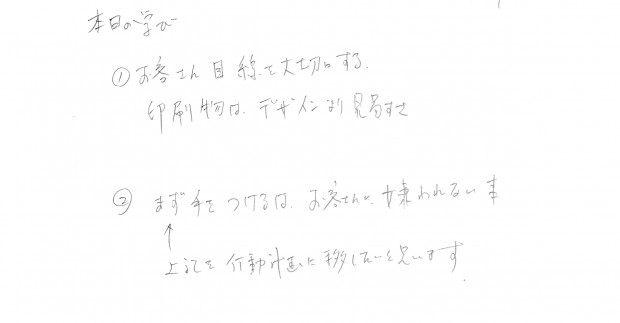 本日の学び
① お客さん目線を大切にする。
印刷物は、デザインより見易さ
② まず手をつけるは、お客さんに嫌われない事
↑
上記を行動計画に移したいと思います。